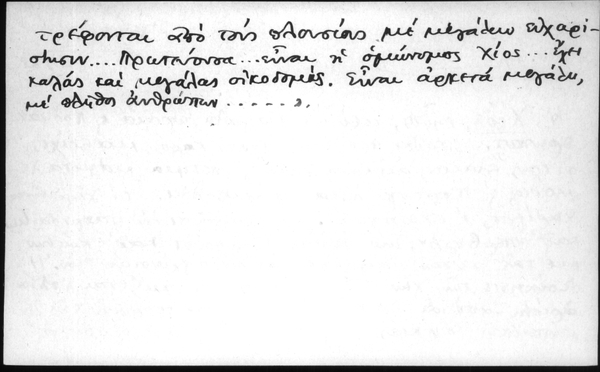 τρέφονται ἀπὸ τοὺς πλουσίους μὲ μεγάλην εὐχαρί-
στησιν.... Πρωτεύουσα... εἶναι ἡ ὁμώνυμος Χίος... ἔχει
καλὰς καὶ μεγάλας οἰκοδομάς. Εἶναι ἀρκετὰ μεγάλη,
μὲ πλῆθος ἀνθρώπων......».